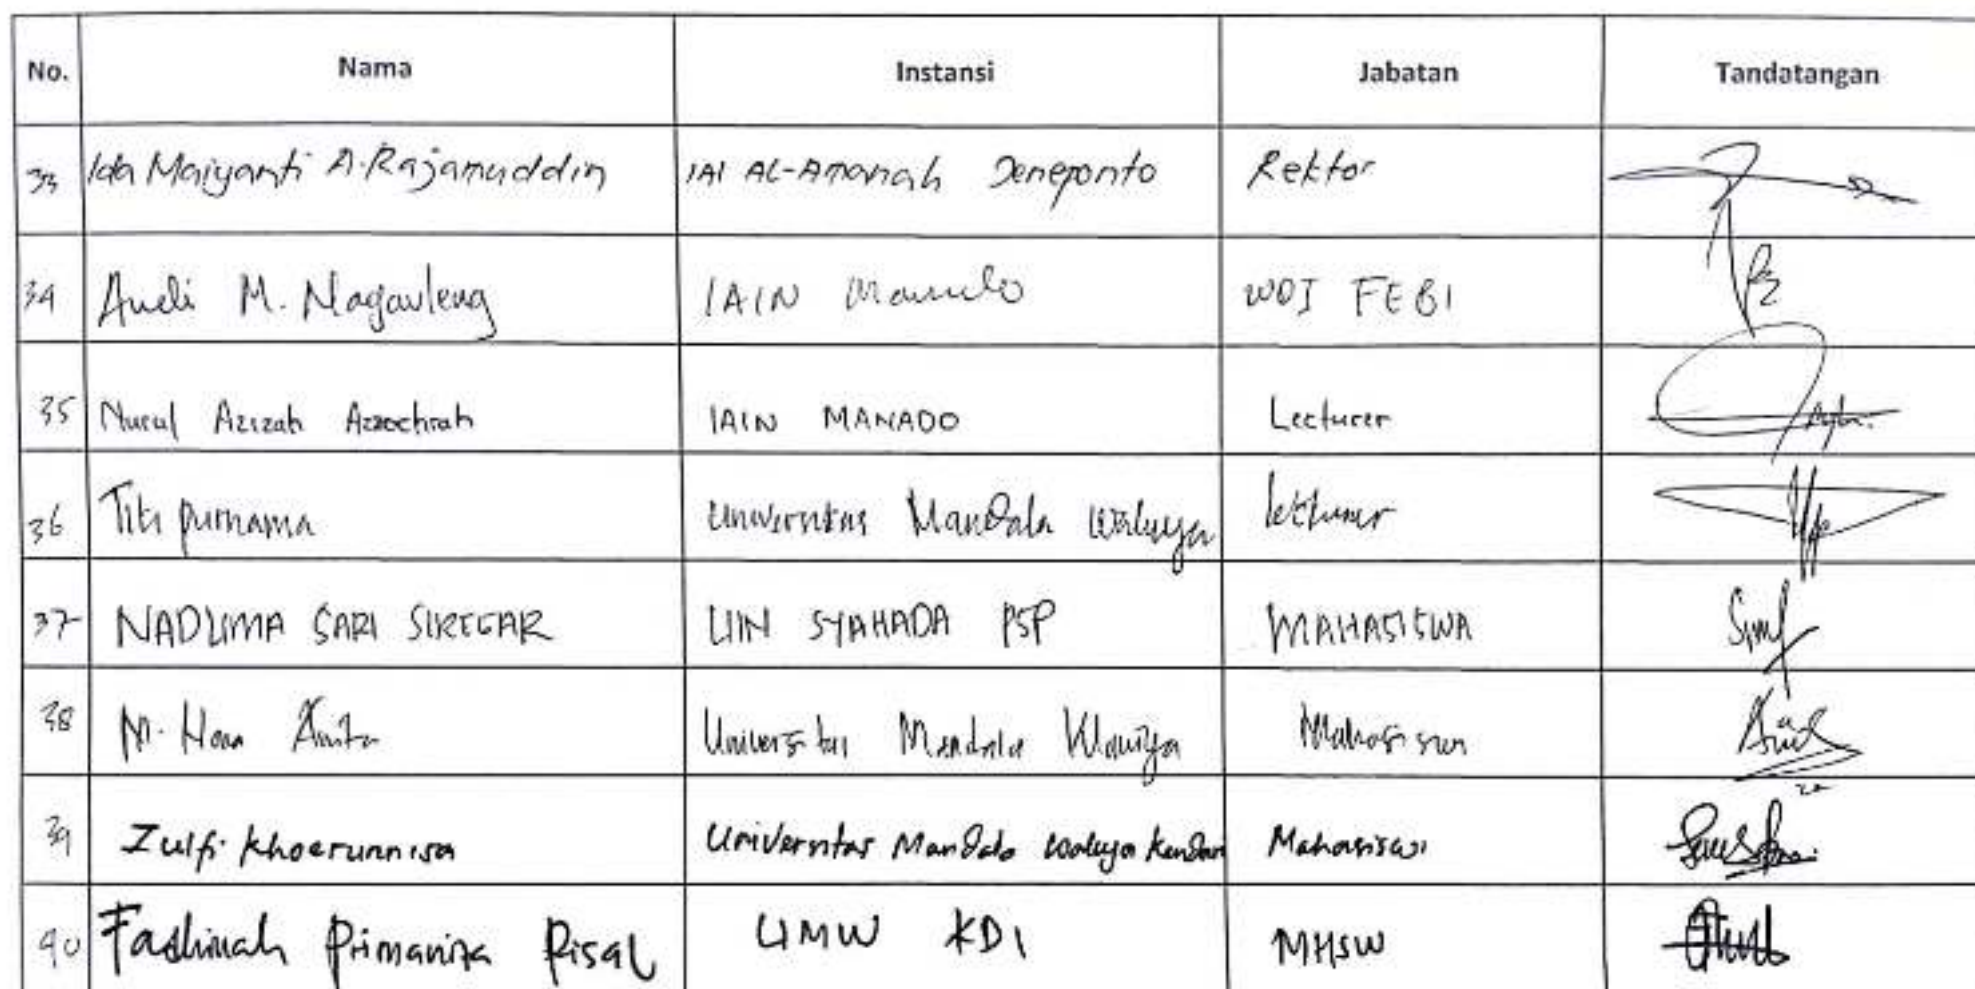 No. Nama Instansi Jabatan Tandatangan
33 Ida Maiyanti A.Rajamuddin IAI AL-Amanah Jeneponto Rektor
34 Andi M. Nagauleng IAIN Manado WDI FEBI
35 Nurul Azizah Azzochrah IAIN MANADO Lecturer
36 Titi purnama Universitas Mandala Waluya lecturer
37 NADLIMA SARI SIREGAR UIN SYAHADA PSP MAHASISWA
38 Universitas Mandala Waluya Mahasiswa
39 Zulfi Khoerunnisa Universitas Mandala Waluya Kendari Mahasiswi
40 Primanita Risal UMW KDI MHSW